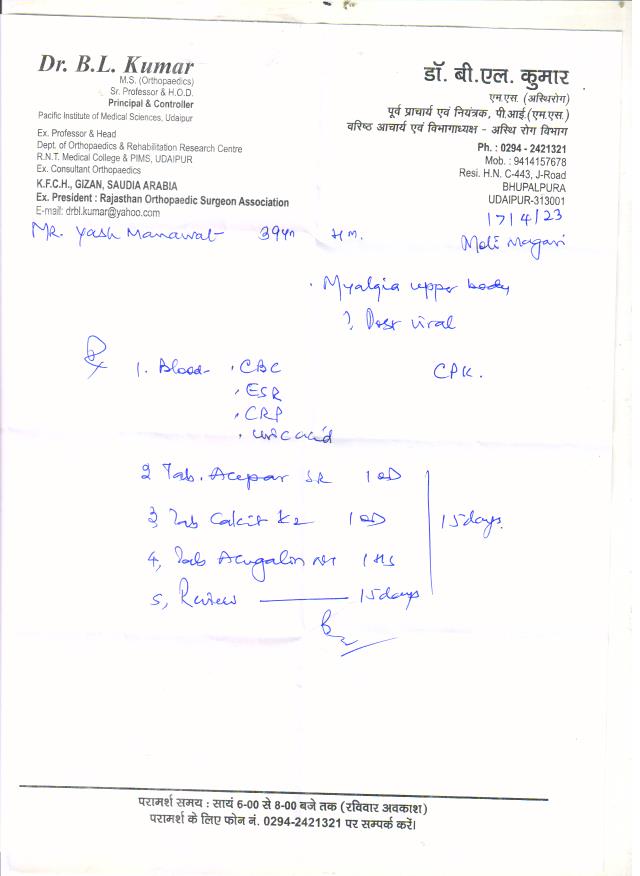 Dr. B.L. Kumar
M.S. (Orthopaedics)
Sr. Professor & H.O.D.
Principal & Controller
Pacific Institute of Medical Sciences, Udaipur
Ex. Professor & Head
Dept. of Orthopaedics & Rehabilitation Research Centre
R.N.T. Medical College & PIMS, UDAIPUR
Ex. Consultant Orthopaedics
K.F.C.H., GIZAN, SAUDI ARABIA
Ex. President : Rajasthan Orthopaedic Surgeon Association
E-mail: drbl.kumar@yahoo.com
डॉ. बी.एल. कुमार
एम.एस. (अस्थिरोग)
पूर्व प्राचार्य एवं नियंत्रक, पी.आई.(एम.एस.)
वरिष्ठ आचार्य एवं विभागाध्यक्ष - अस्थि रोग विभाग
Ph. : 0294 - 2421321
Mob. : 9414157678
Resi. H.N. C-443, J-Road
BHUPALPURA
UDAIPUR-313001
17/4/23
MR. Yash Manawat 39yr
Moti Magari
. Myalgia upper body
? Post viral
Rx
1. Blood . CBC CPK.
. ESR
. CRP
. uric acid
2 Tab. Acepar SR 1 OD
3, Tab Calcit K2 1 OD 15 days.
4, Tab Acugalin NT 1 HS
5, Review 15 days
परामर्श समय : सायं 6-00 से 8-00 बजे तक (रविवार अवकाश)
परामर्श के लिए फोन नं. 0294-2421321 पर सम्पर्क करें।